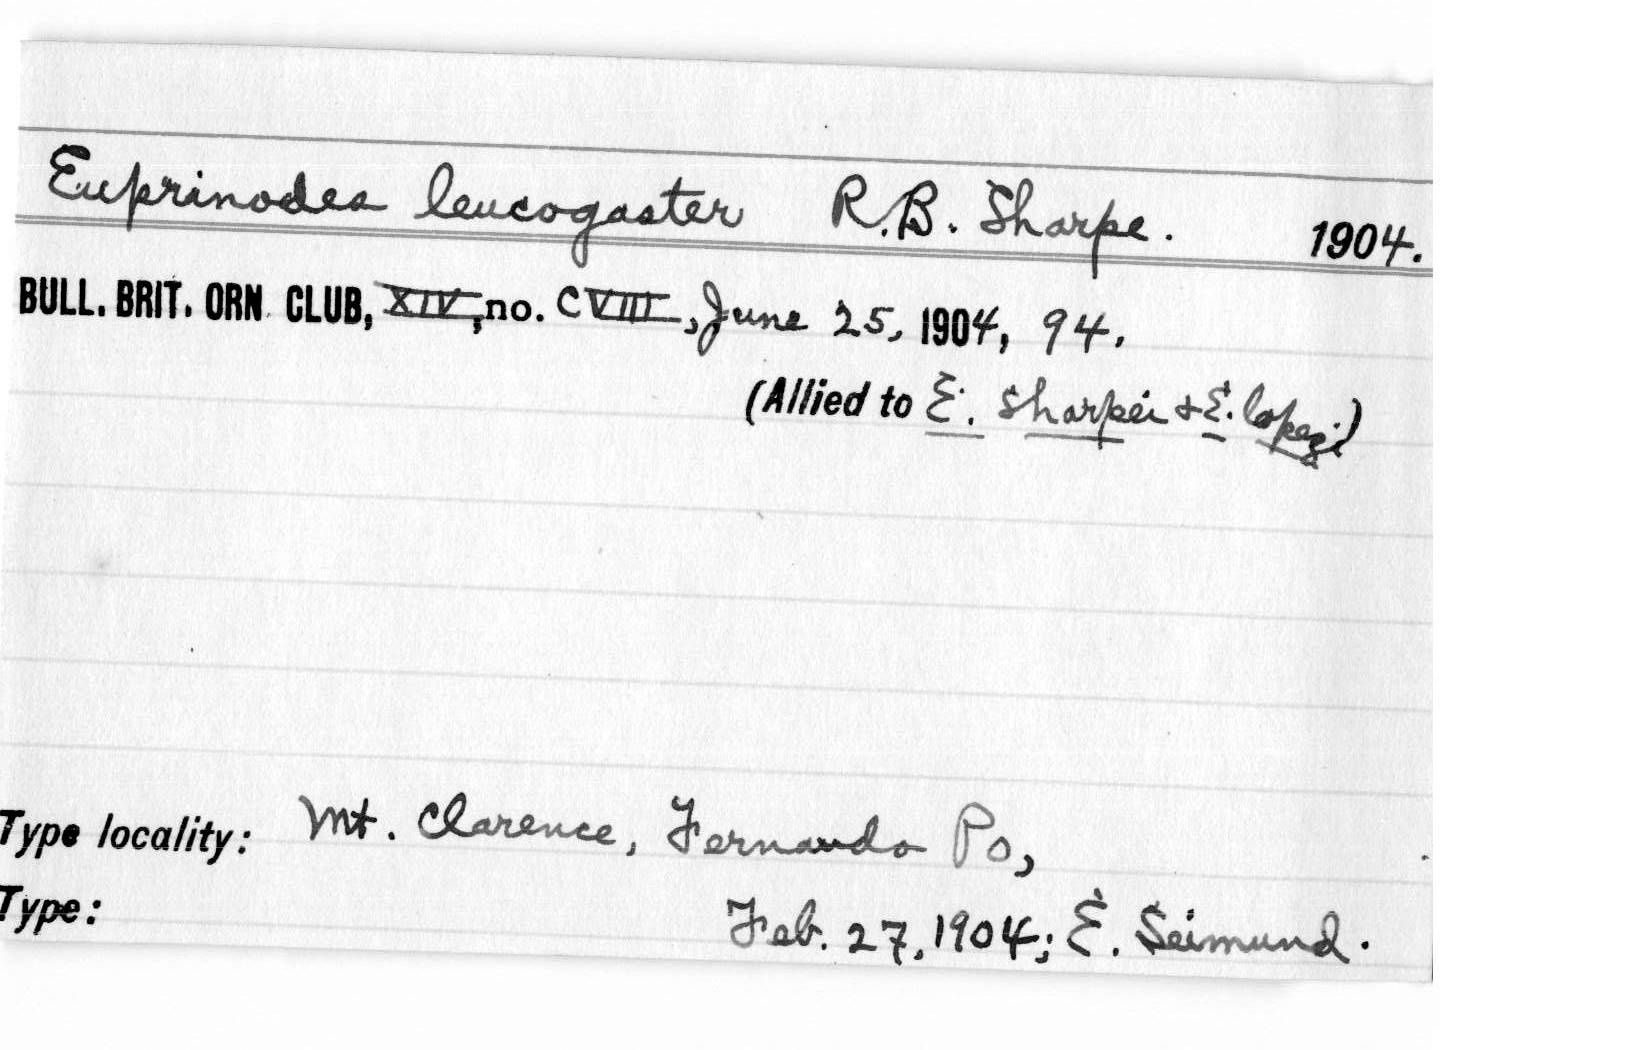 Euprinodes leucogaster R.B. Sharpe. 1904.
BULL. BRIT. ORN CLUB, XIV, no. CVIII, June 25, 1904, 94.
(Allied to E. sharpei & E. lopezi)
Type locality: Mt. Clarence, Fernando Po,
Type: Feb. 27, 1904; E. Seimund.